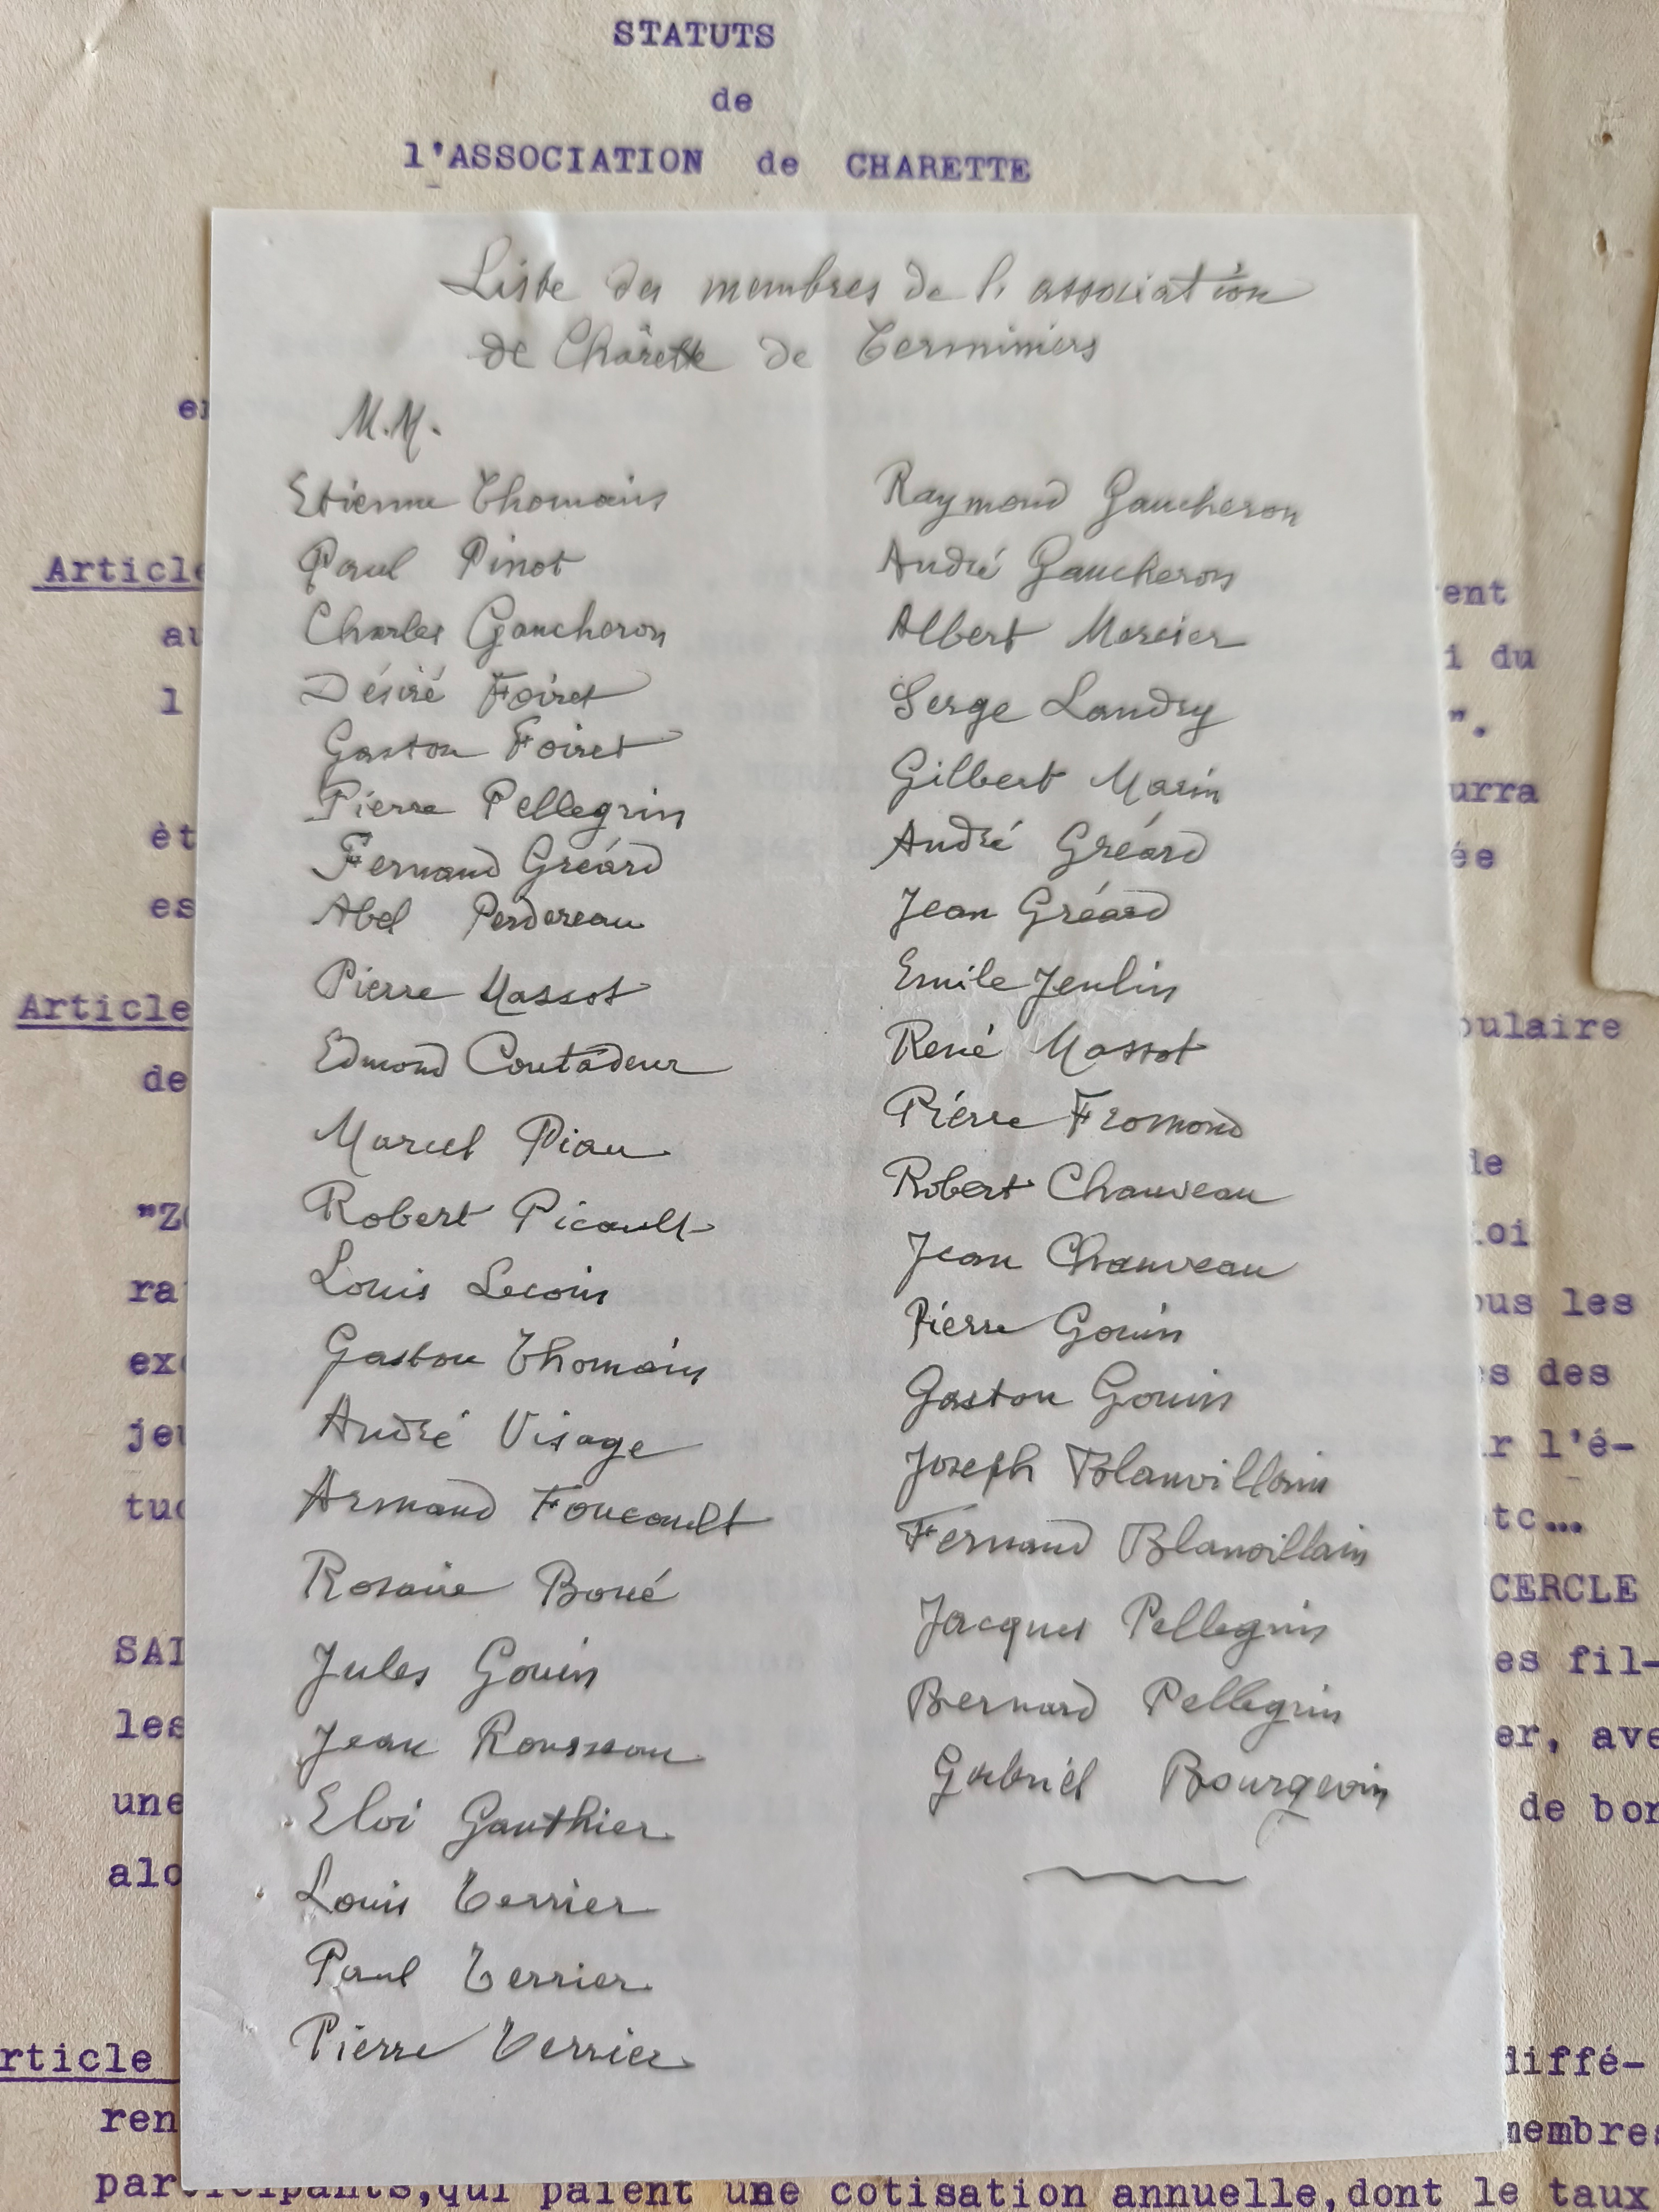 STATUTS
de
l'ASSOCIATION de CHARETTE
Liste des membres de l'association
de Charette de Terminiers
M.M.
Etienne Thomain
Paul Pinot
Charles Gaucheron
Désiré Foiret
Gaston Foiret
Pierre Pellegrin
Fernand Gréard
Abel Perdereau
Pierre Massot
Edmond Coutadeur
Marcel Piau
Robert Picault
Louis Lecoin
Gaston Thomain
André Visage
Armand Foucault
Rosaire Boué
Jules Gouin
Jean Rousseau
Eloi Gauthier
Louis Terrier
Paul Terrier
Pierre Terrier
Raymond Gaucheron
André Gaucheron
Albert Mercier
Serge Landry
Gilbert Marin
André Gréard
Jean Gréard
Emile Jeulin
René Massot
Pierre Fromond
Robert Chauveau
Jean Chauveau
Pierre Gouin
Gaston Gouin
Joseph Blanvillain
Fernand Blanvillain
Jacques Pellegrin
Bernard Pellegrin
Gabriel Bourgevin
Article
ent
au
i du
l
".
urra
êt
ée
es
Article
pulaire
de
le
"Z
loi
ra
ous les
exe
s des
jeu
r l'é-
tud
tc...
CERCLE
SAI
es fil-
les
er, ave
une
de bon
alo
rticle
diffé-
ren
membres
participants,qui paient une cotisation annuelle,dont le taux